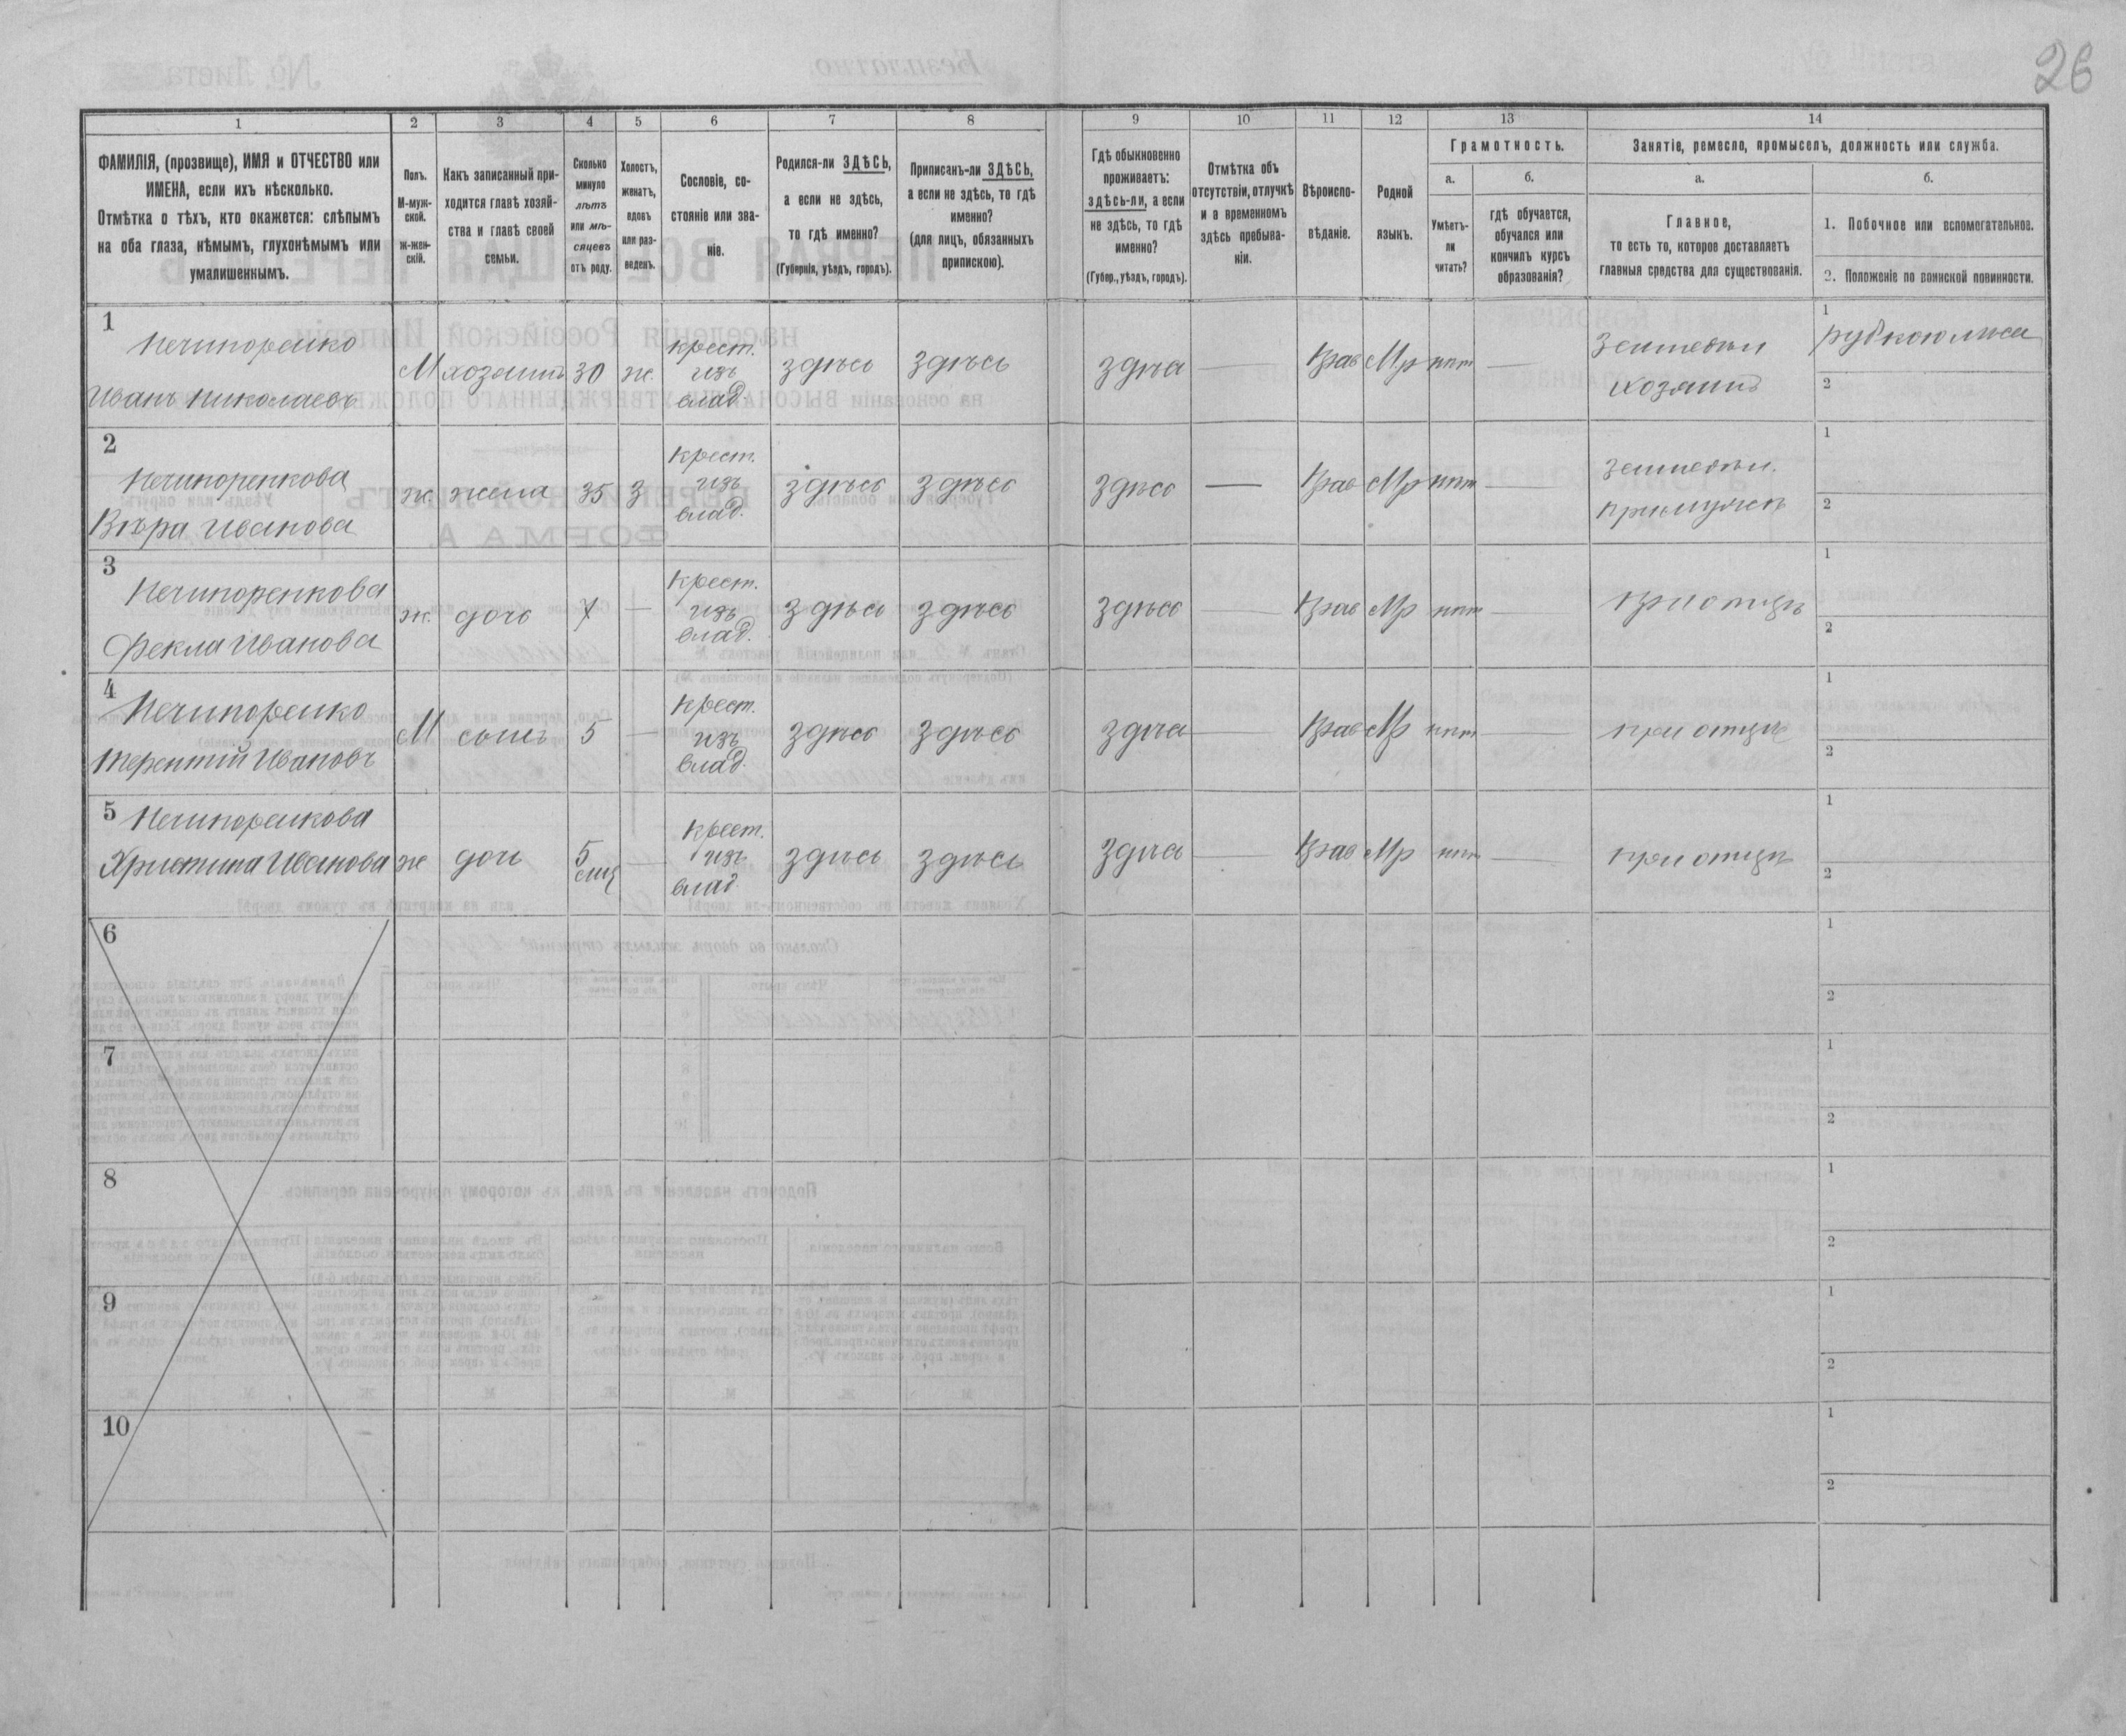 26
1 2 3 4 5 6 7 8 9 10 11 12 13 14
ФАМИЛІЯ, (прозвище), ИМЯ и ОТЧЕСТВО или
ИМЕНА, если ихъ нѣсколько.
Отмѣтка о тѣхъ, кто окажется: слѣпымъ
на оба глаза, нѣмымъ, глухонѣмымъ или
умалишеннымъ.
Полъ.
М-муж-
ской.
Ж-жен-
скій.
Какъ записанный при-
ходится главѣ хозяй-
ства и главѣ своей
семьи.
Сколько
минуло
лѣтъ
или мѣ-
сяцевъ
отъ роду.
Холостъ,
женатъ,
вдовъ
или раз-
веденъ.
Сословіе, со-
стояніе или зва-
ніе.
Родился-ли ЗДѢСЬ,
а если не здѣсь,
то гдѣ именно?
(Губернія, уѣздъ, городъ).
Приписанъ-ли ЗДѢСЬ,
а если не здѣсь, то гдѣ
именно?
(для лицъ, обязанныхъ
припискою).
Гдѣ обыкновенно
проживаетъ:
здѣсь-ли, а если
не здѣсь, то гдѣ
именно?
(Губер., уѣздъ, городъ).
Отмѣтка объ
отсутствіи, отлучкѣ
и о временномъ
здѣсь пребыва-
ніи.
Вѣроиспо-
вѣданіе.
Родной
языкъ.
Грамотность.
а.
Умѣетъ-
ли
читать?
б.
гдѣ обучается,
обучался или
кончилъ курсъ
образованія?
Занятіе, ремесло, промыселъ, должность или служба.
а.
Главное,
то есть то, которое доставляетъ
главныя средства для существованія.
б.
1. Побочное или вспомогательное.
2. Положеніе по воинской повинности.
1
Нечипоренко
Иванъ Николаевъ
М хозяинъ 30 ж.
крест.
изъ
влад.
здѣсь здѣсь здѣсь — Прав Мр нѣт —
Земледѣл
хозяинъ
1
рубкою лѣса
2
2
Нечипоренкова
Вѣра Иванова
ж. жена 35 з
крест.
изъ
влад.
здѣсь здѣсь здѣсь — Прав Мр нѣт —
земледѣл.
при мужѣ
1
2
3
Нечипоренкова
Фекла Иванова
ж. дочь 7 —
крест.
изъ
влад.
здѣсь здѣсь здѣсь — Прав Мр нѣт —
при отцѣ
1
2
4
Нечипоренко
Терентій Ивановъ
М сынъ 5 —
крест.
изъ
влад.
здѣсь здѣсь здѣсь — Прав Мр нѣт —
при отцѣ
1
2
5
Нечипоренкова
Христина Иванова
ж дочь 5 —
крест.
изъ
влад
здѣсь здѣсь здѣсь — Прав Мр нѣт —
при отцѣ
1
2
6
1
2
7
1
2
8
1
2
9
1
2
10
1
2